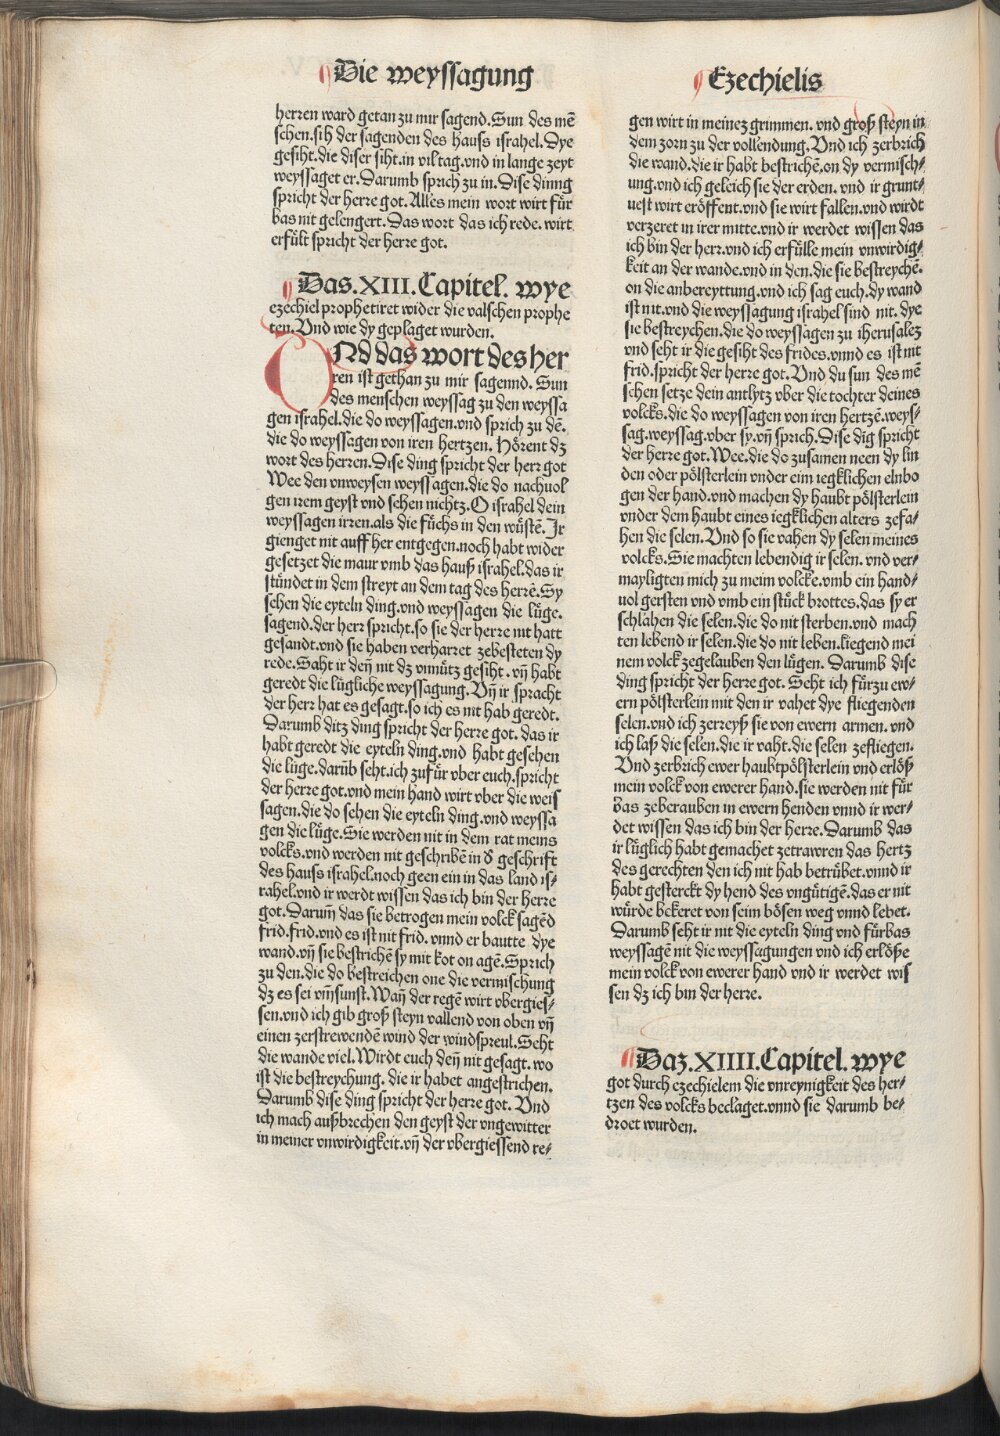 Die weyssagung
Ezechielis
herren ward getan zu mir sagend. Sun des mē
schen. sih der sagenden des hauss israhel. Dye
gesiht. die diser siht. in vil tag. vnd in lange zeyt
weyssaget er. Darumb sprich zu in. Dise dinng
spricht der herre got. Alles mein wort wirt für
bas nit gelengert. Das wort das ich rede. wirt
erfült spricht der herre got.
Das. XIII. Capitel. wye
ezechiel prophetiret wider die valschen prophe
ten. Vnd wie dy geplaget wurden.
VNd das wort des her
ren ist gethan zu mir sagennd. Sun
des menschen weyssag zu den weyssa
gen israhel. die do weyssagen. vnd sprich zu dē.
die do weyssagen von iren hertzen. Hörent dz
wort des herren. Dise ding spricht der herr got
Wee den vnweysen weyssagen. die do nachuol
gen irem geyst vnd sehen nichtz. O israhel dein
weyssagen irren. als die füchs in den wüstē. Ir
gienget nit auff her entgegen. noch habt wider
gesetzet die maur vmb das hauß israhel. das ir
stündet in dem streyt an dem tag des herrē. Sy
sehen die eyteln ding. vnd weyssagen die lüge.
sagend. der herr spricht. so sie der herre nit hatt
gesandt. vnd sie haben verharret zebesteten dy
rede. Saht ir deñ nit dz vnnütz gesiht. vñ habt
geredt die lügliche weyssagung. Vñ ir spracht
der herr hat es gesagt. so ich es nit hab geredt.
Darumb ditz ding spricht der herre got. das ir
habt geredt die eyteln ding. vnd habt gesehen
die lüge. darūb seht. ich zu für vber euch. spricht
der herre got. vnd mein hand wirt vber die weis
sagen. die do sehen die eyteln ding. vnd weyssa
gen die lüge. Sie werden nit in dem rat meins
volcks. vnd werden nit geschribē in d geschrift
des hauss israhel. noch geen ein in das land is/
rahel. vnd ir werdt wissen das ich bin der herre
got. Darum̄ das sie betrogen mein volck sagēd
frid. frid. vnd es ist nit frid. vnnd er bautte dye
wand. vñ sie bestrichē sy mit kot on agē. Sprich
zu den. die do bestreichen one die vermischung
dz es sei vm̄sunst. Wañ der regē wirt vbergies/
sen. vnd ich gib groß steyn vallend von oben vñ
einen zerstrewendē wind der windspreul. Seht
die wande viel. Wirdt euch deñ nit gesagt. wo
ist die bestreychung. die ir habet angestrichen.
Darumb dise ding spricht der herre got. Vnd
ich mach außbrechen den geyst der vngewitter
in meiner vnwirdigkeit. vñ der vbergiessend re/
gen wirt in meinez grimmen. vnd groß steyn in
dem zorn zu der vollendung. Vnd ich zerbrich
die wand. die ir habt bestrichē. on dy vermisch/
ung. vnd ich geleich sie der erden. vnd ir grunt/
uest wirt eröffent. vnd sie wirt fallen. vnd wirdt
verzeret in irer mitte. vnd ir werdet wissen das
ich bin der herr. vnd ich erfülle mein vnwirdig/
keit an der wande. vnd in den. die sie bestreychē.
on die anbereyttung. vnd ich sag euch. dy wand
ist nit. vnd die weyssagung israhel sind nit. dye
sie bestreychen. die do weyssagen zu iherusalez
vnd seht ir die gesiht des frides. vnnd es ist nit
frid. spricht der herre got. Vnd du sun des mē
schen setze dein antlytz vber die tochter deines
volcks. die do weyssagen von iren hertzē. weys/
sag. weyssag. vber sy. vñ sprich. Dise dig spricht
der herre got. Wee. die do zusamen neen dy lin
den oder pölsterlein vnder ein iegklichen elnbo
gen der hand. vnd machen dy haubt pölsterlein
vnder dem haubt eines iegklichen alters zefa/
hen die selen. Vnd so sie vahen dy selen meines
volcks. Sie machten lebendig ir selen. vnd ver/
mayligten mich zu meim volcke. vmb ein hand/
uol gersten vnd vmb ein stück brottes. das sy er
schlahen die selen. die do nit sterben. vnd mach
ten lebend ir selen. die do nit leben. liegend mei
nem volck zegelauben den lügen. Darumb dise
ding spricht der herre got. Seht ich für zu ew/
ern pölsterlein mit den ir vahet dye fliegenden
selen. vnd ich zerreyß sie von ewern armen. vnd
ich laß die selen. die ir vaht. die selen zefliegen.
Vnd zerbrich ewer haubtpölsterlein vnd erlöß
mein volck von ewerer hand. sie werden nit für
bas zeberauben in ewern henden vnnd ir wer/
det wissen das ich bin der herre. Darumb das
ir lüglich habt gemachet zetrawren das hertz
des gerechten den ich nit hab betrübet. vnnd ir
habt gesterckt dy hend des vngütigē. das er nit
würde bekeret von seim bösen weg vnnd lebet.
Darumb seht ir nit die eyteln ding vnd fürbas
weyssagē nit die weyssagungen vnd ich erlöße
mein volck von ewerer hand vnd ir werdet wis
sen dz ich bin der herre.
Daz. XIIII. Capitel. wye
got durch ezechielem die vnreynigkeit des her/
tzen des volcks beclaget. vnnd sie darumb be/
droet wurden.